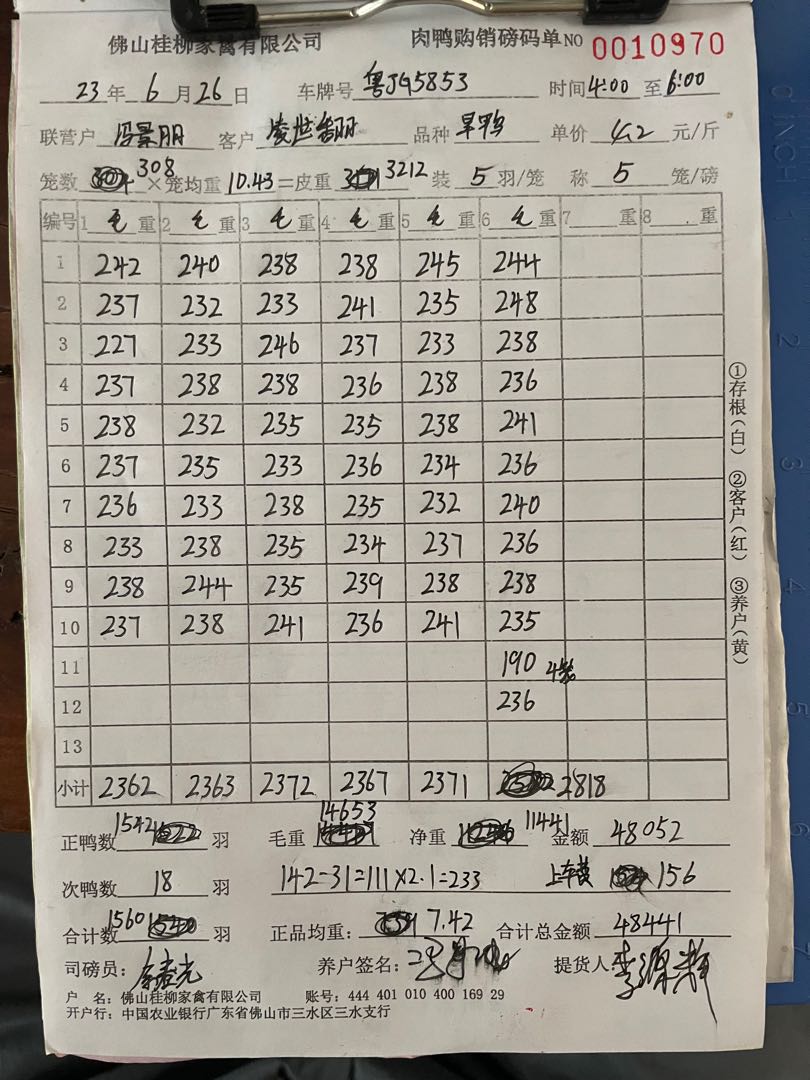 佛山桂柳家禽有限公司 肉鸭购销磅码单 NO 0010970
23年 6月26日 车牌号 粤JG5853 时间4:00至6:00
联营户 冯景明 客户 品种 旱鸭 单价 4.2 元/斤
笼数 308×笼均重 10.43=皮重 3212 装 5 羽/笼 称 5 笼/磅
编号 1 毛 重 2 毛 重 3 毛 重 4 毛 重 5 毛 重 6 毛 重 7 重 8 重
1 242 240 238 238 245 244
2 237 232 233 241 235 248
3 227 233 246 237 233 238
4 237 238 238 236 238 236
5 238 232 235 235 238 241
6 237 235 233 236 234 236
7 236 233 238 235 232 240
8 233 238 235 234 237 236
9 238 244 235 239 238 238
10 237 238 241 236 241 235
11 190 4笼
12 236
13
小计 2362 2363 2372 2367 2371 2818
正鸭数 1542 羽 毛重 14653 净重 11441 金额 48052
次鸭数 18 羽 142-31=111×2.1=233 上车费 156
合计数 1560 羽 正品均重: 7.42 合计总金额 48441
司磅员: 养户签名: 提货人:
户 名: 佛山桂柳家禽有限公司 账号: 444 401 010 400 169 29
开户行: 中国农业银行广东省佛山市三水区三水支行
①存根(白) ②客户(红) ③养户(黄)